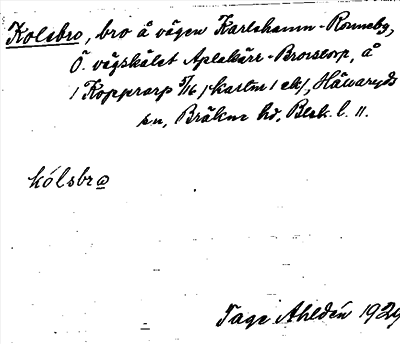 Kolsbro, bro å vägen Karlshamn-Ronneby,
Ö. vägskälet Aplekärr-Brorstorp, å
1 Kopparp 5/16 (hartm 1 ek), Hällaryds
sn, Bräkne hd, Blek. l. 11.
kólsbrω
Tage Ahldén 1929